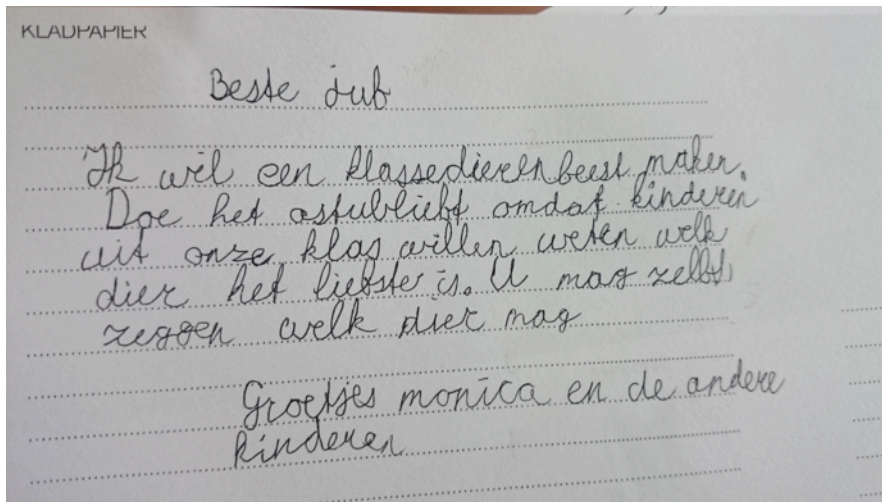 KLADPAPIER
Beste juf
Ik wil een klassedierenbeest maken.
Doe het astublieft omdat kinderen
uit onze klas willen weten welk
dier het liefste is. U mag zelf
zeggen welk dier mag
Groetjes monica en de andere
kinderen